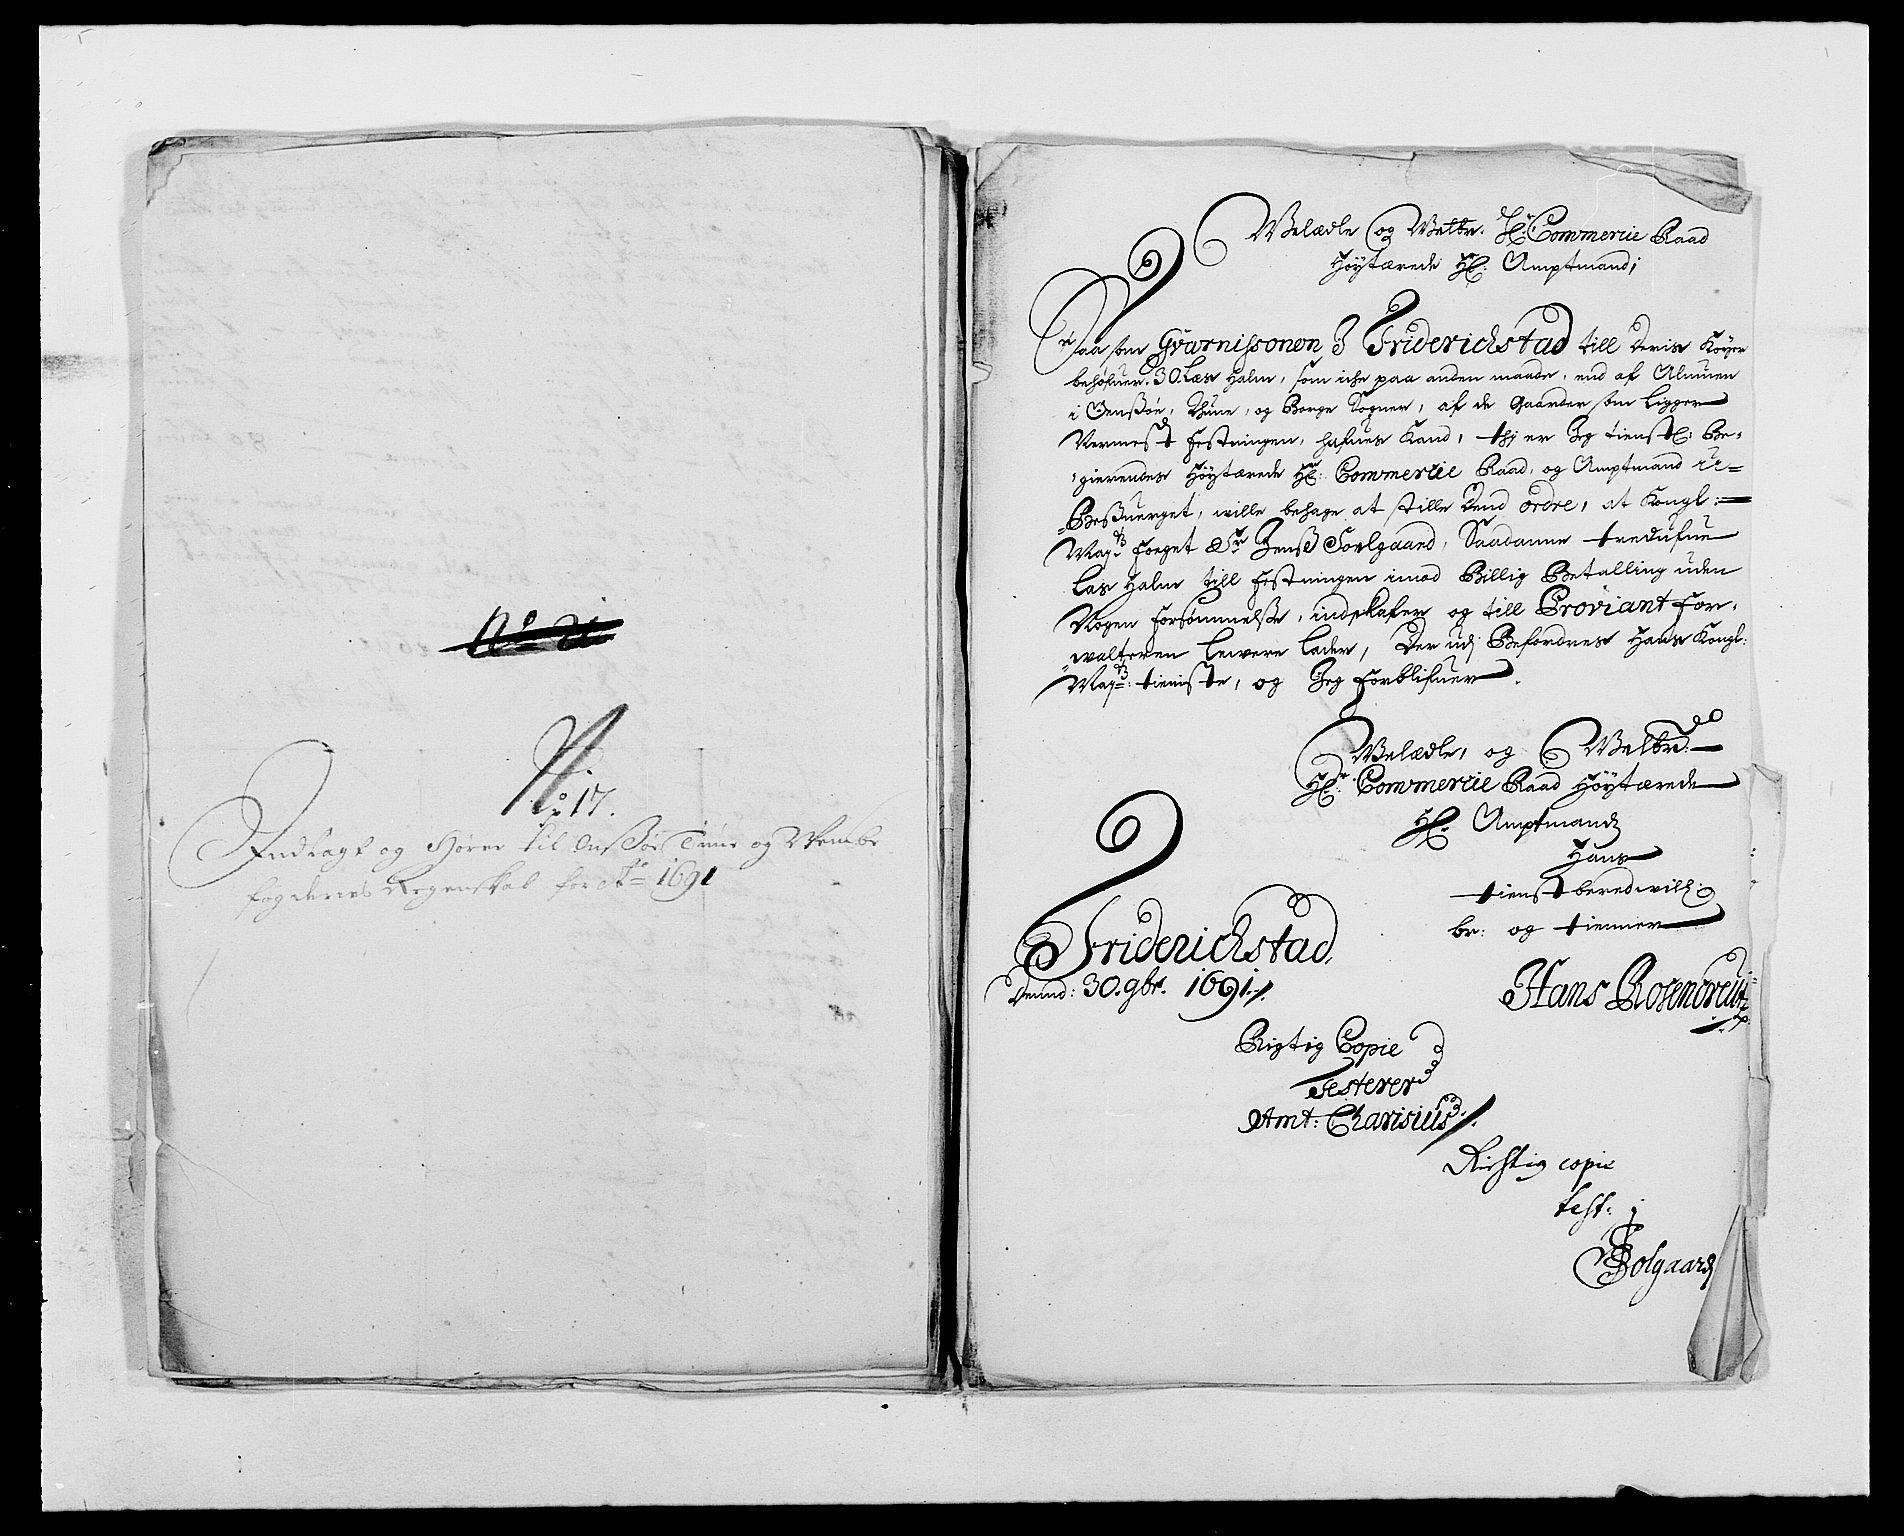 No 17.
Indlagt og Hører til Onsøe Tune og Wembe
fogderies Regenskab for Ao 1691
Welædle og Welbr. Hr. Commercie Raad
Høytærede Hr: Amptmand;
Saa som Gvarnissonen I Friderichstad till deris Køyer
behøfuer 30. Læs Halm, som iche paa anden maade, end af Almuen
i Onssøe, Thune, og Borge Sogner, af de Gaarder som Ligger
Nermest Festningen, hafues Kand, thj er Jeg tienstl: Be-
gierendes Høytærede Hr: Commercie Raad, og Amptmand U-
Besuerget, wille behage at stille Dend ordre, at Kongl:
Mayts Foeget Sr Jenss Soelgaard, Saadanne tredufue
Las Halm till Festningen imod Billig Betalling uden
Nogen Forsømmelsse, indskafer og till Proviant For-
walteren Lewere Lader, Der udj Befordres Hans Kongl:
Mayts: tieniste, og Jeg Forblifuer.
Welædle, og Welbrd:
Hr: Commercie Raad Høytærede
Hr. Amptmands
Hans
tienstberedwill:
br: og tienner
Friderichstad,
Dennd: 30. 9br. 1691.
Hans Rosencreutz
Rigtig Copie
Testerer
Amt: Charisius
Richtig copie
test:
JSolgaard